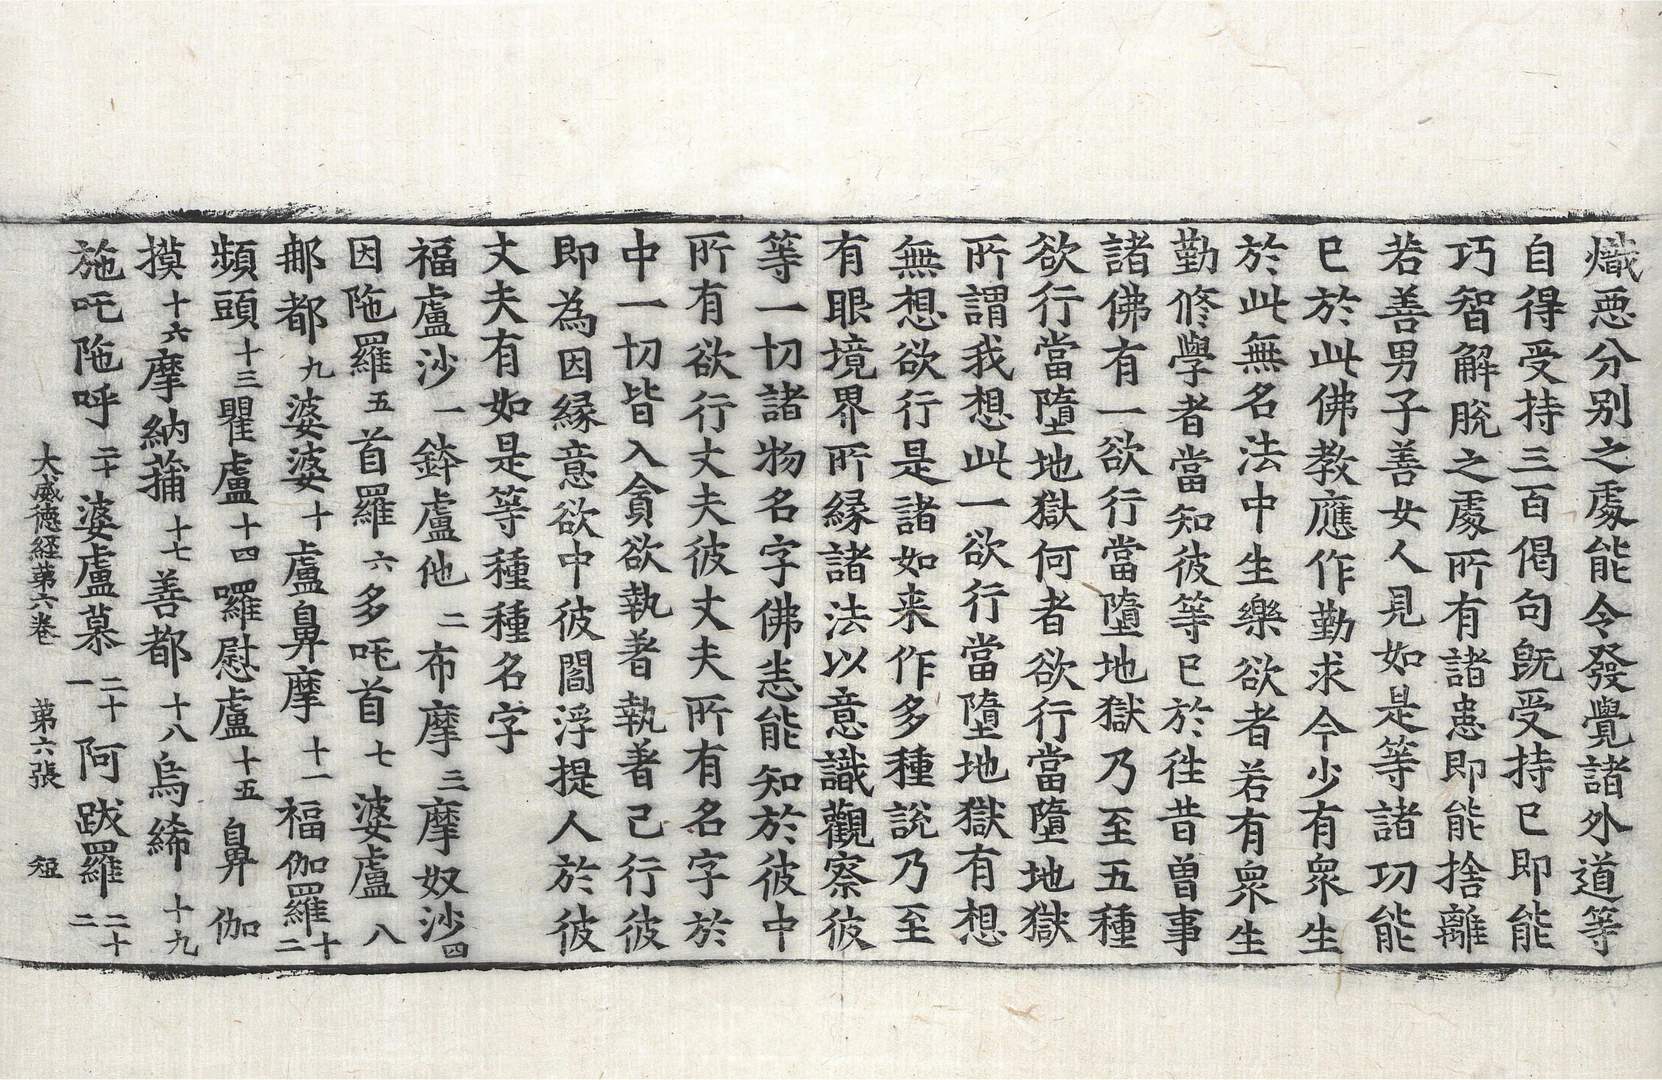 熾惡分別之處能令發覺諸外道等
自得受持三百偈句旣受持已即能
巧智解脫之處所有諸患即能捨離
若善男子善女人見如是等諸功能
已於此佛教應作勤求今少有衆生
於此無名法中生樂欲者若有衆生
勤修學者當知彼等已於往昔曽事
諸佛有一欲行當墮地獄乃至五種
欲行當墮地獄何者欲行當墮地獄
所謂我想此一欲行當墮地獄有想
無想欲行是諸如来作多種說乃至
有眼境界所縁諸法以意識觀察彼
等一切諸物名字佛悉能知於彼中
所有欲行丈夫彼丈夫所有名字於
中一切皆入貪欲執著執著已行彼
即為因縁意欲中彼閻浮提人於彼
丈夫有如是等種種名字
福盧沙一鉢盧他二布摩三摩奴沙四
因陁羅五首羅六多吒首七婆盧八
郍都九婆婆十盧鼻摩十一福伽羅十二
頻頭十三瞿盧十四囉慰盧十五鼻伽
摸十六摩納蒱十七善都十八烏絺十九
施吒陁呼二十婆盧慕二十一阿跋羅二十二
大威德経苐六卷　苐六張　短